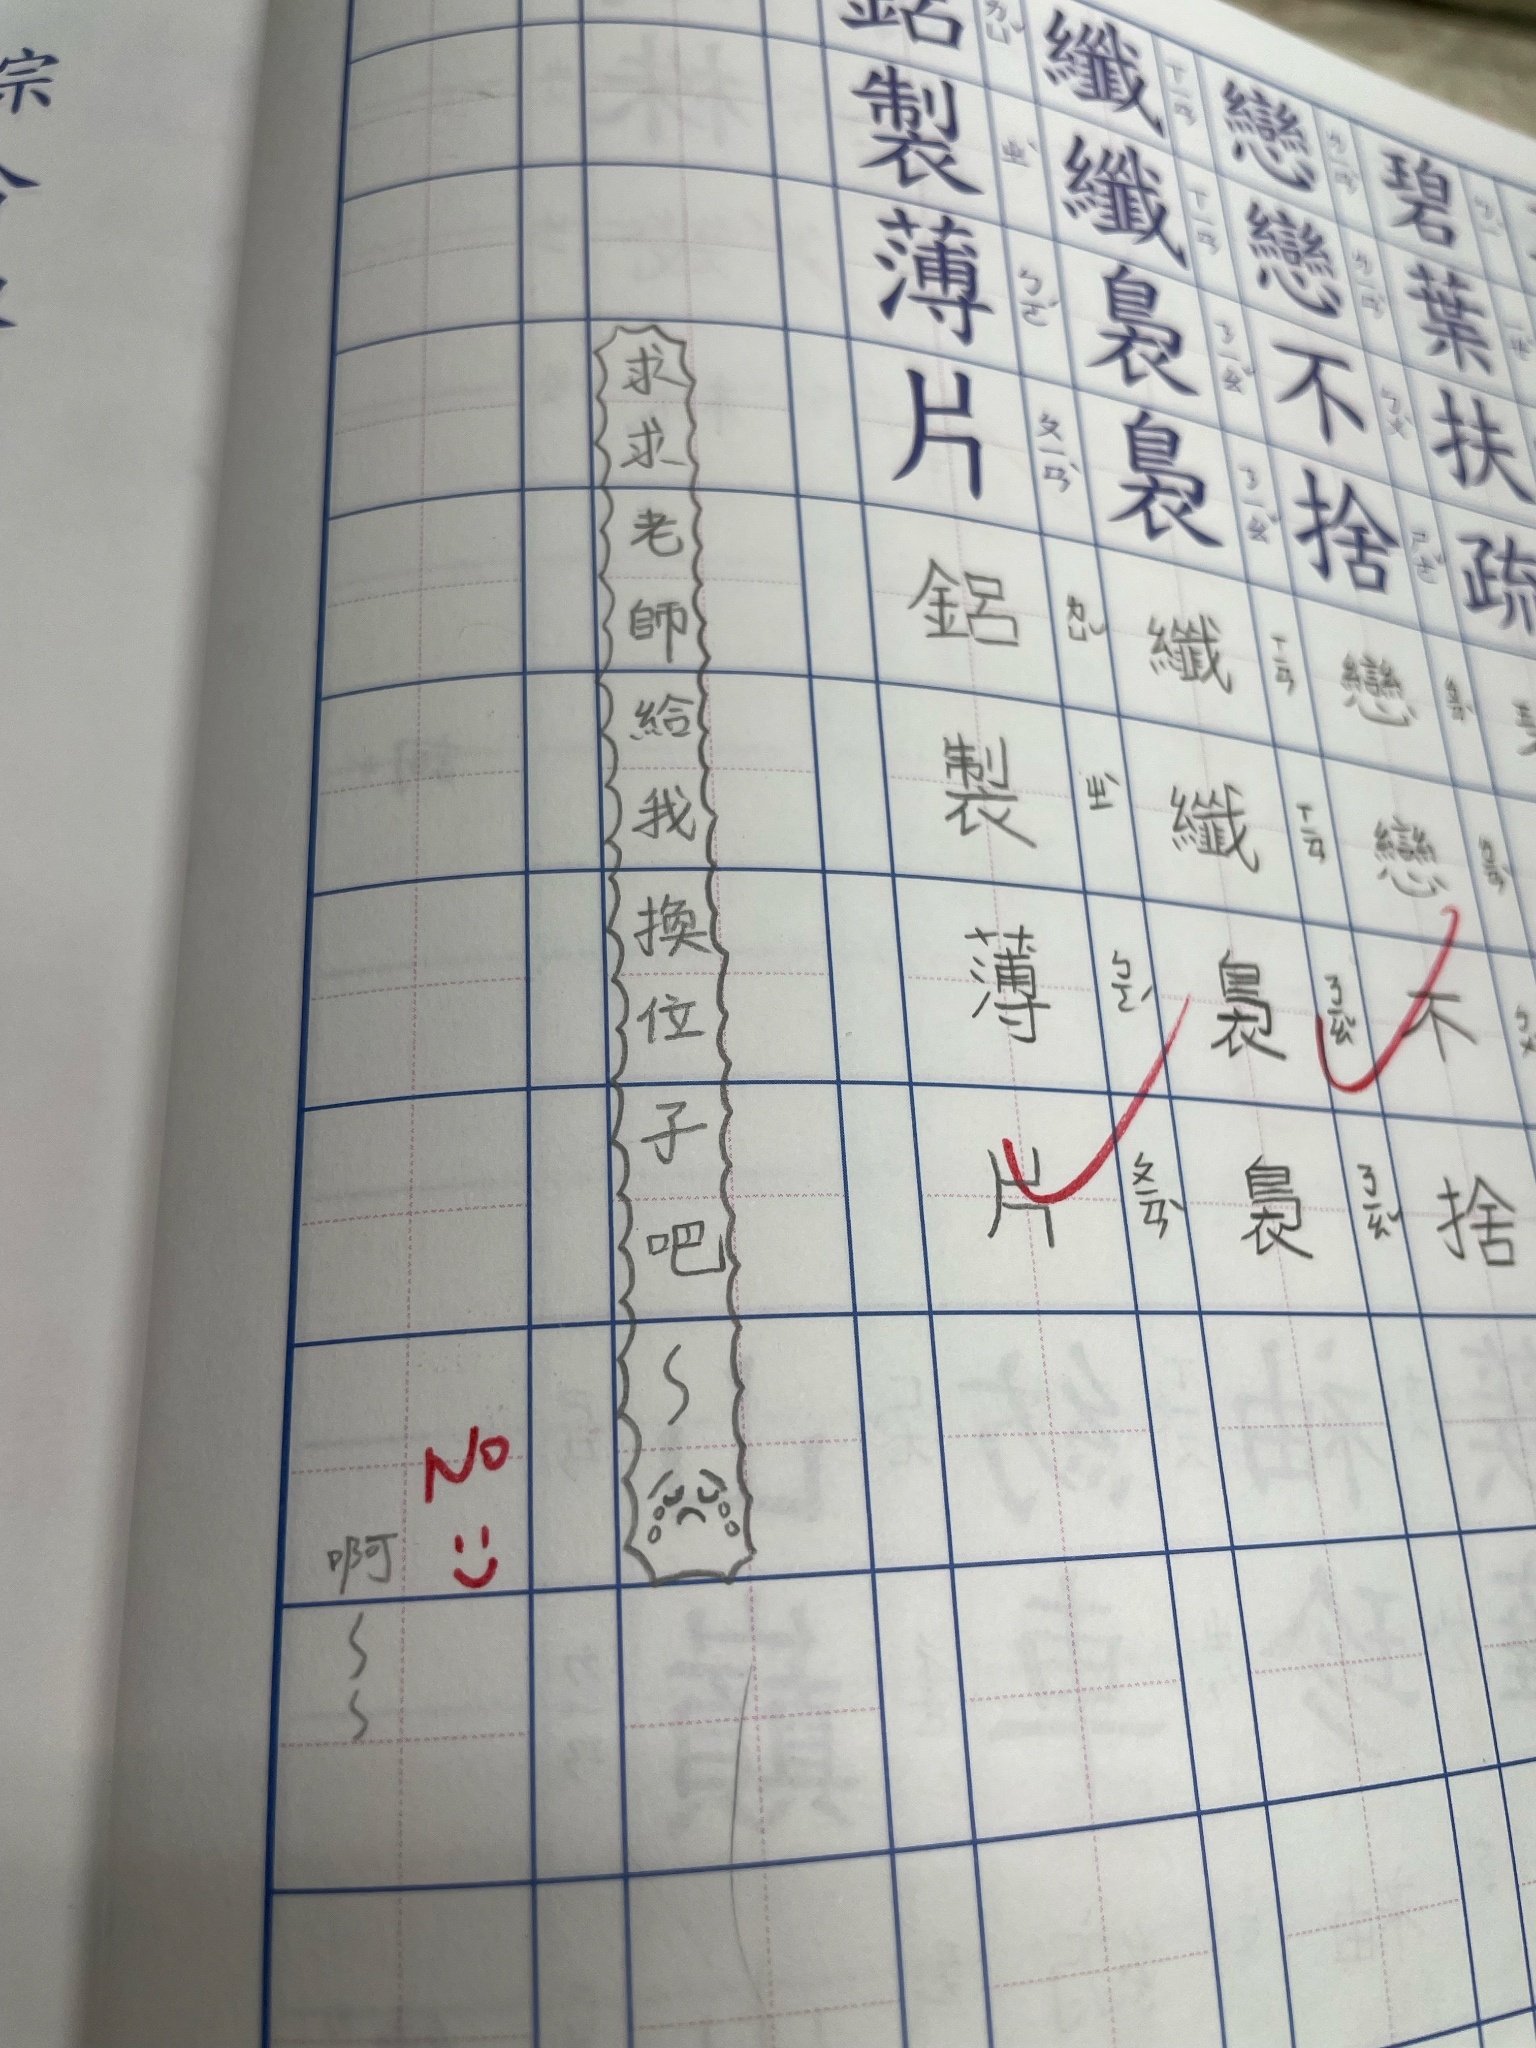 碧葉扶疏
戀戀不捨戀戀不捨
ㄌㄧㄢˋ ㄌㄧㄢˋ ㄅㄨˋ ㄕㄜˇ
纖纖裊裊纖纖裊裊
ㄒㄧㄢ ㄒㄧㄢ ㄋㄧㄠˇ ㄋㄧㄠˇ ㄒㄧㄢ ㄒㄧㄢ ㄋㄧㄠˇ ㄋㄧㄠˇ
鋁製薄片鋁製薄片
ㄌㄩˇ ㄓˋ ㄅㄛˊ ㄆㄧㄢˋ ㄌㄩˇ ㄓˋ ㄅㄛˊ ㄆㄧㄢˋ
求求老師給我換位子吧~
No
啊~~
宗